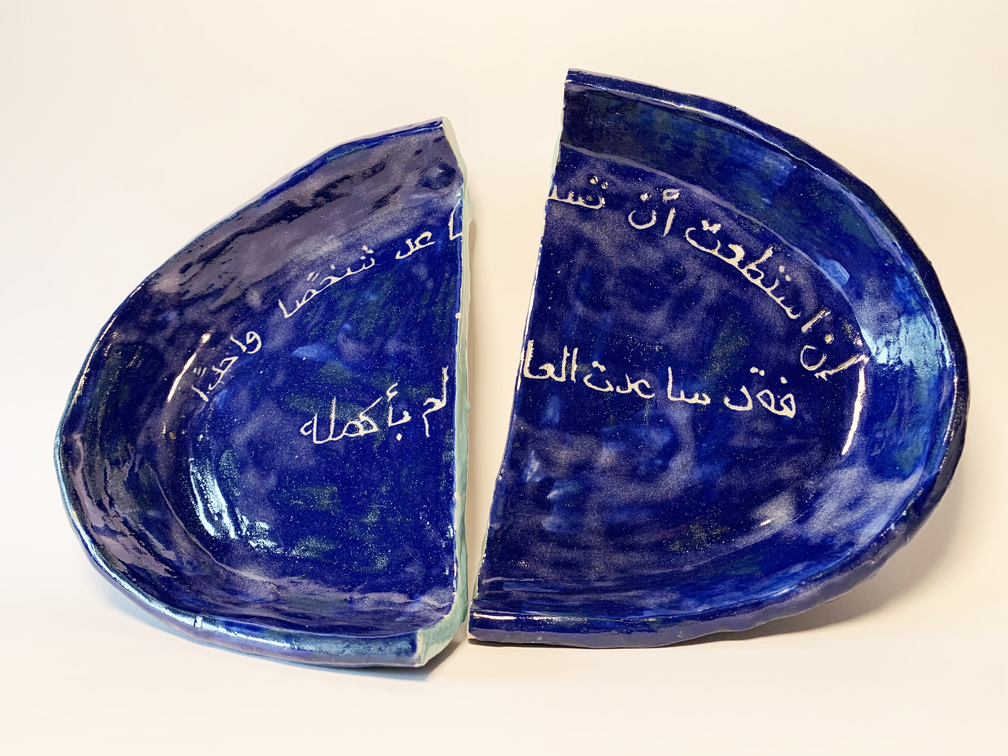 إن استطعت أن تساعد شخصًا واحدًا
فقد ساعدت العالم بأكمله